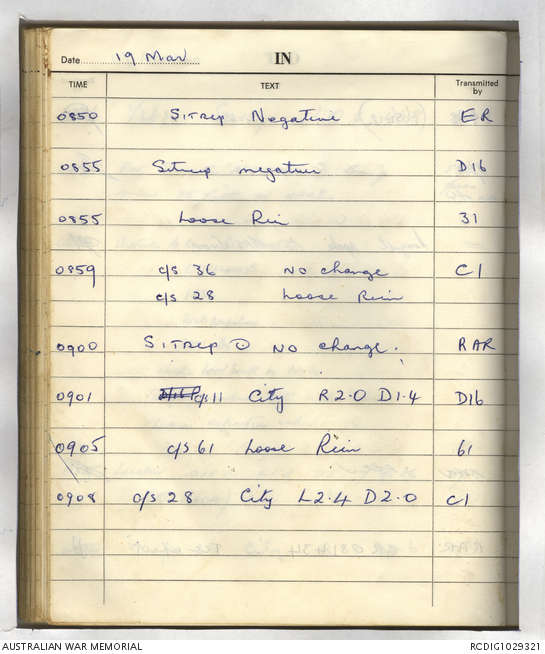 Date 19 Mar IN
TIME TEXT Transmitted by
0850 Sitrep Negative ER
0855 Sitrep negative D16
0855 Loose Rein 31
0859 c/s 36 No change C1
c/s 28 Loose Rein
0900 Sitrep No change. RAR
0901 c/s 11 City R 2.0 D 1.4 D16
0905 c/s 61 Loose Rein 61
0908 c/s 28 City L 2.4 D 2.0 C1
AUSTRALIAN WAR MEMORIAL RCDIG1029321